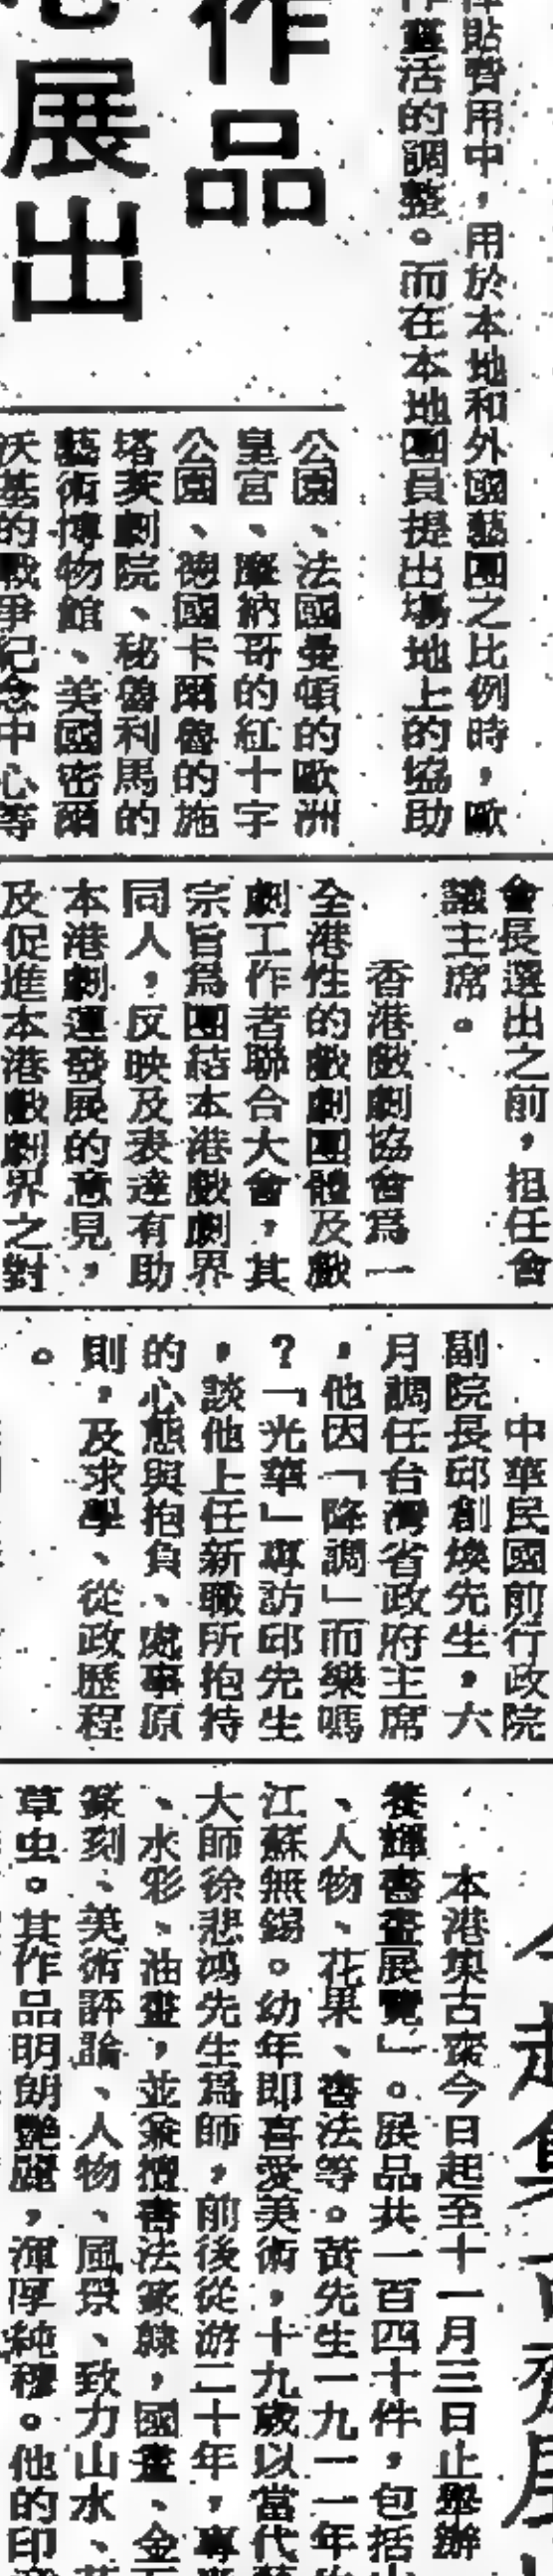 貼費用中，用於本地和外國藝團之比例時，歐
活的調整。而在本地團員提出場地上的協助
作品
展出
公園、法國曼頓的歐洲
皇宮、摩納哥的紅十字
公園、德國卡爾魯的施
塔芙劇院、秘魯利馬的
藝術博物館、美國密爾
沃基的戰爭紀念中心等
會長選出之前，担任會
議主席。
香港戲劇協會為一
全港性的戲劇團體及戲
劇工作者聯合大會，其
宗旨為團結本港戲劇界
同人，反映及表達有助
本港劇運發展的意見，
及促進本港戲劇界之對
中華民國前行政院
副院長邱創煥先生，六
月調任台灣省政府主席
，他因「降調」而樂嗎
？「光華」專訪邱先生
，談他上任新職所抱持
的心態與抱負、處事原
則，及求學、從政歷程
。
本港集古齋今日起至十一月三日止舉辦
養輝書畫展覽」。展品共一百四十件，包括
、人物、花果、書法等。黃先生一九一一年
江蘇無錫。幼年即喜愛美術，十九歲以當代
大師徐悲鴻先生為師，前後從游二十年，專
、水彩、油畫，並兼擅書法篆隸，國畫、金
篆刻、美術評論、人物、風景、致力山水、
草虫。其作品明朗艷麗，渾厚純穆。他的印